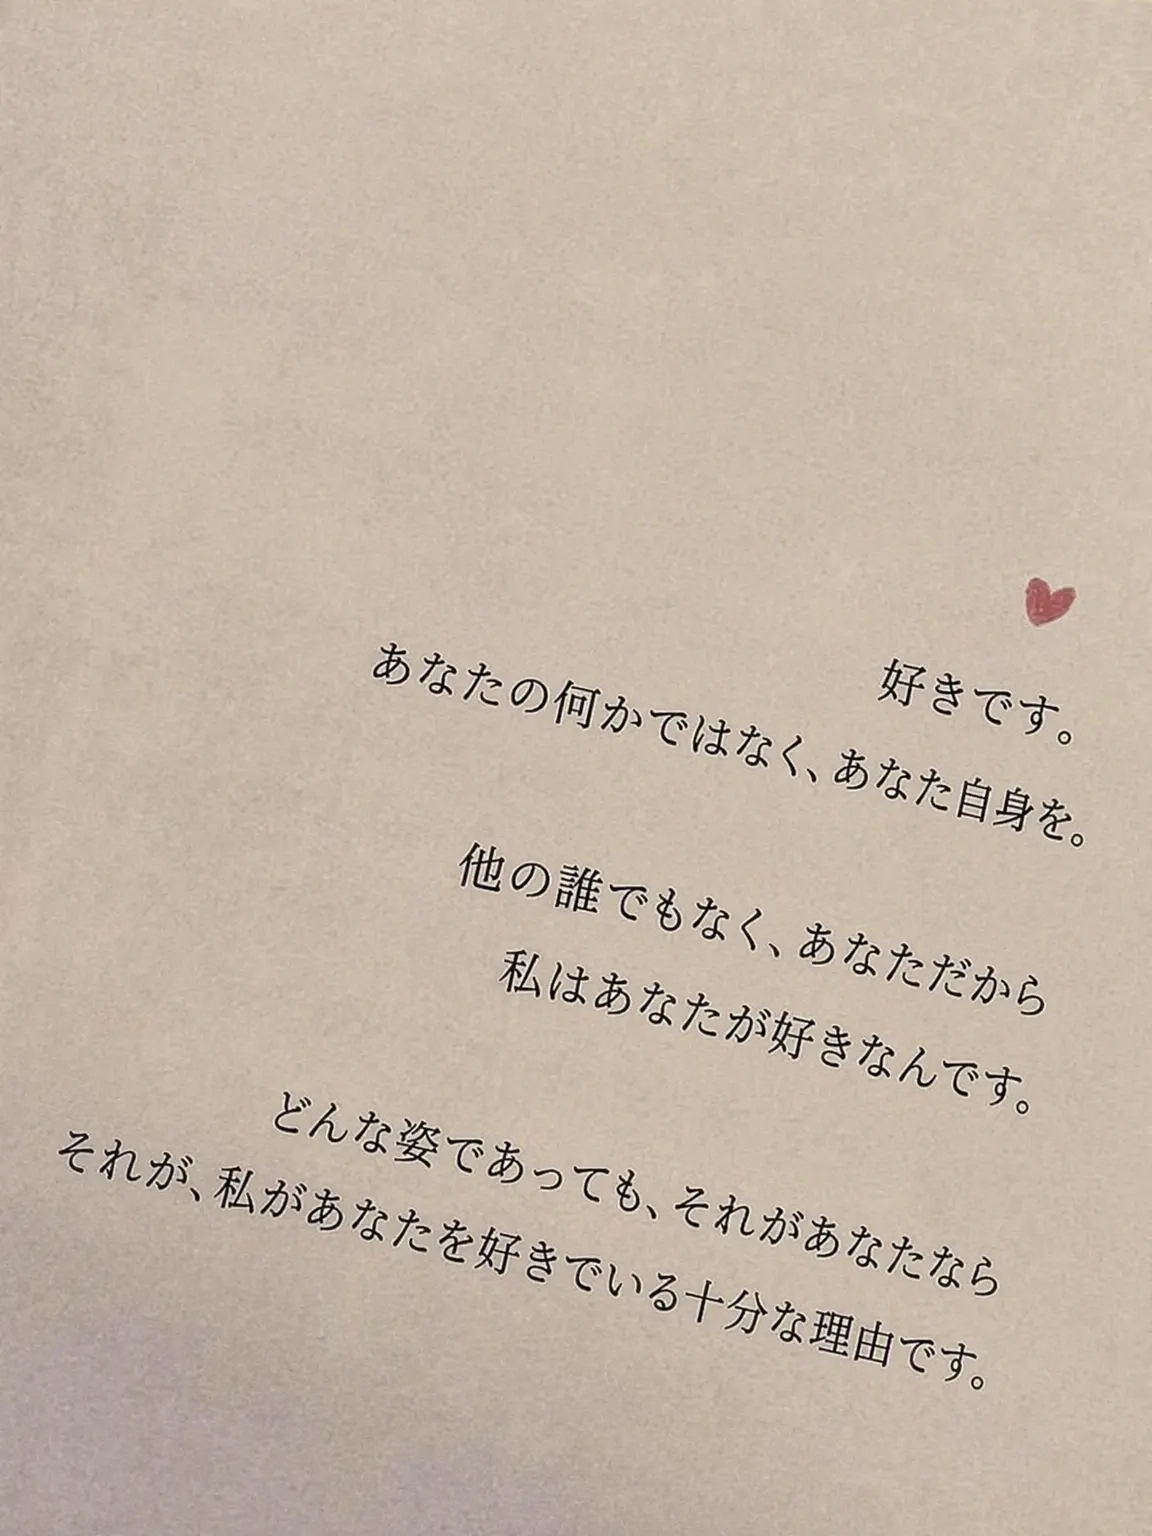 好きです。
あなたの何かではなく、あなた自身を。
他の誰でもなく、あなただから
私はあなたが好きなんです。
どんな姿であっても、それがあなたなら
それが、私があなたを好きでいる十分な理由です。